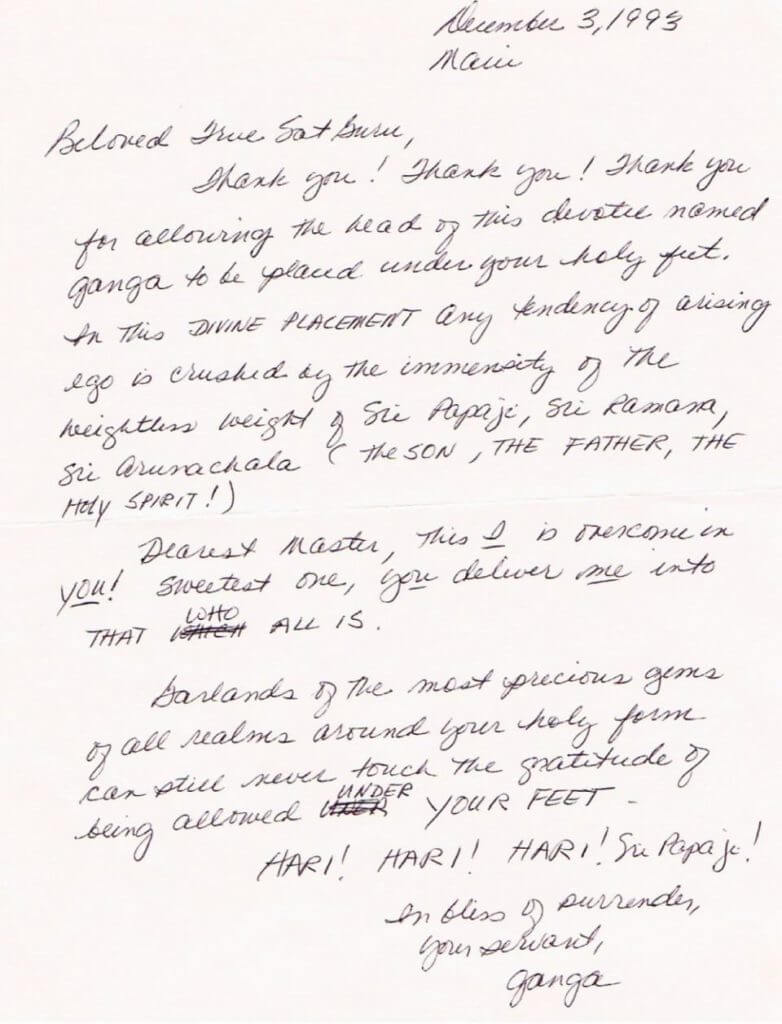 December 3, 1993
Maui
Beloved True Sat Guru,
Thank you! Thank you! Thank you
for allowing the head of this devotee named
ganga to be placed under your holy feet.
In this DIVINE PLACEMENT any tendency of arising
ego is crushed by the immensity of the
weightless weight of Sri Papaji, Sri Ramana,
Sri Arunachala (the SON, THE FATHER, THE
Holy SPIRIT!)
Dearest Master, this I is overcome in
you! Sweetest one, you deliver me into
THAT WHO WHICH ALL IS.
Garlands of the most precious gems
of all realms around your holy form
can still never touch the gratitude of
being allowed UNDER YOUR FEET.
HARI! HARI! HARI! Sri Papaji!
In bliss of surrender,
your servant,
ganga